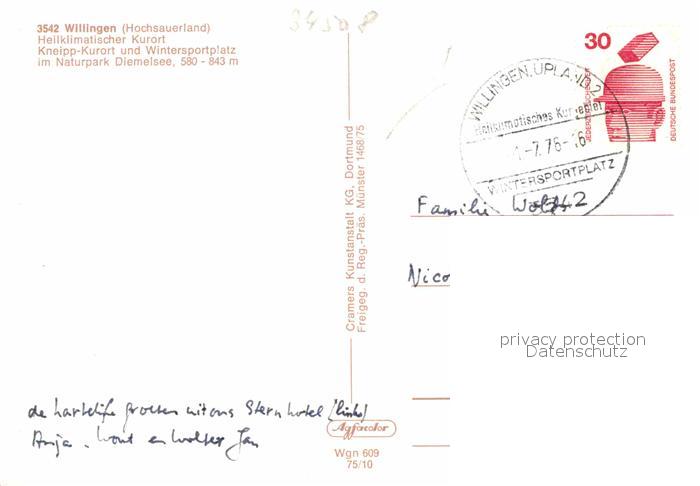 3542 Willingen (Hochsauerland)
Heilklimatischer Kurort
Kneipp-Kurort und Wintersportplatz
im Naturpark Diemelsee, 580 - 843 m
30
JEDERZEIT SICHERHEIT
DEUTSCHE BUNDESPOST
WILLINGEN, UPLAND 2
Heilklimatisches Kurgebiet
1-7.76-16
WINTERSPORTPLATZ
3542
Cramers Kunstanstalt KG, Dortmund
Freigeg. d. Reg.-Präs. Münster 1468/75
Familie Wolfs
Nico
privacy protection
Datenschutz
de hartelijke groeten uit ons Sternhotel (links)
Anja. Wout en Wolter Jan
Agfacolor
Wgn 609
75/10